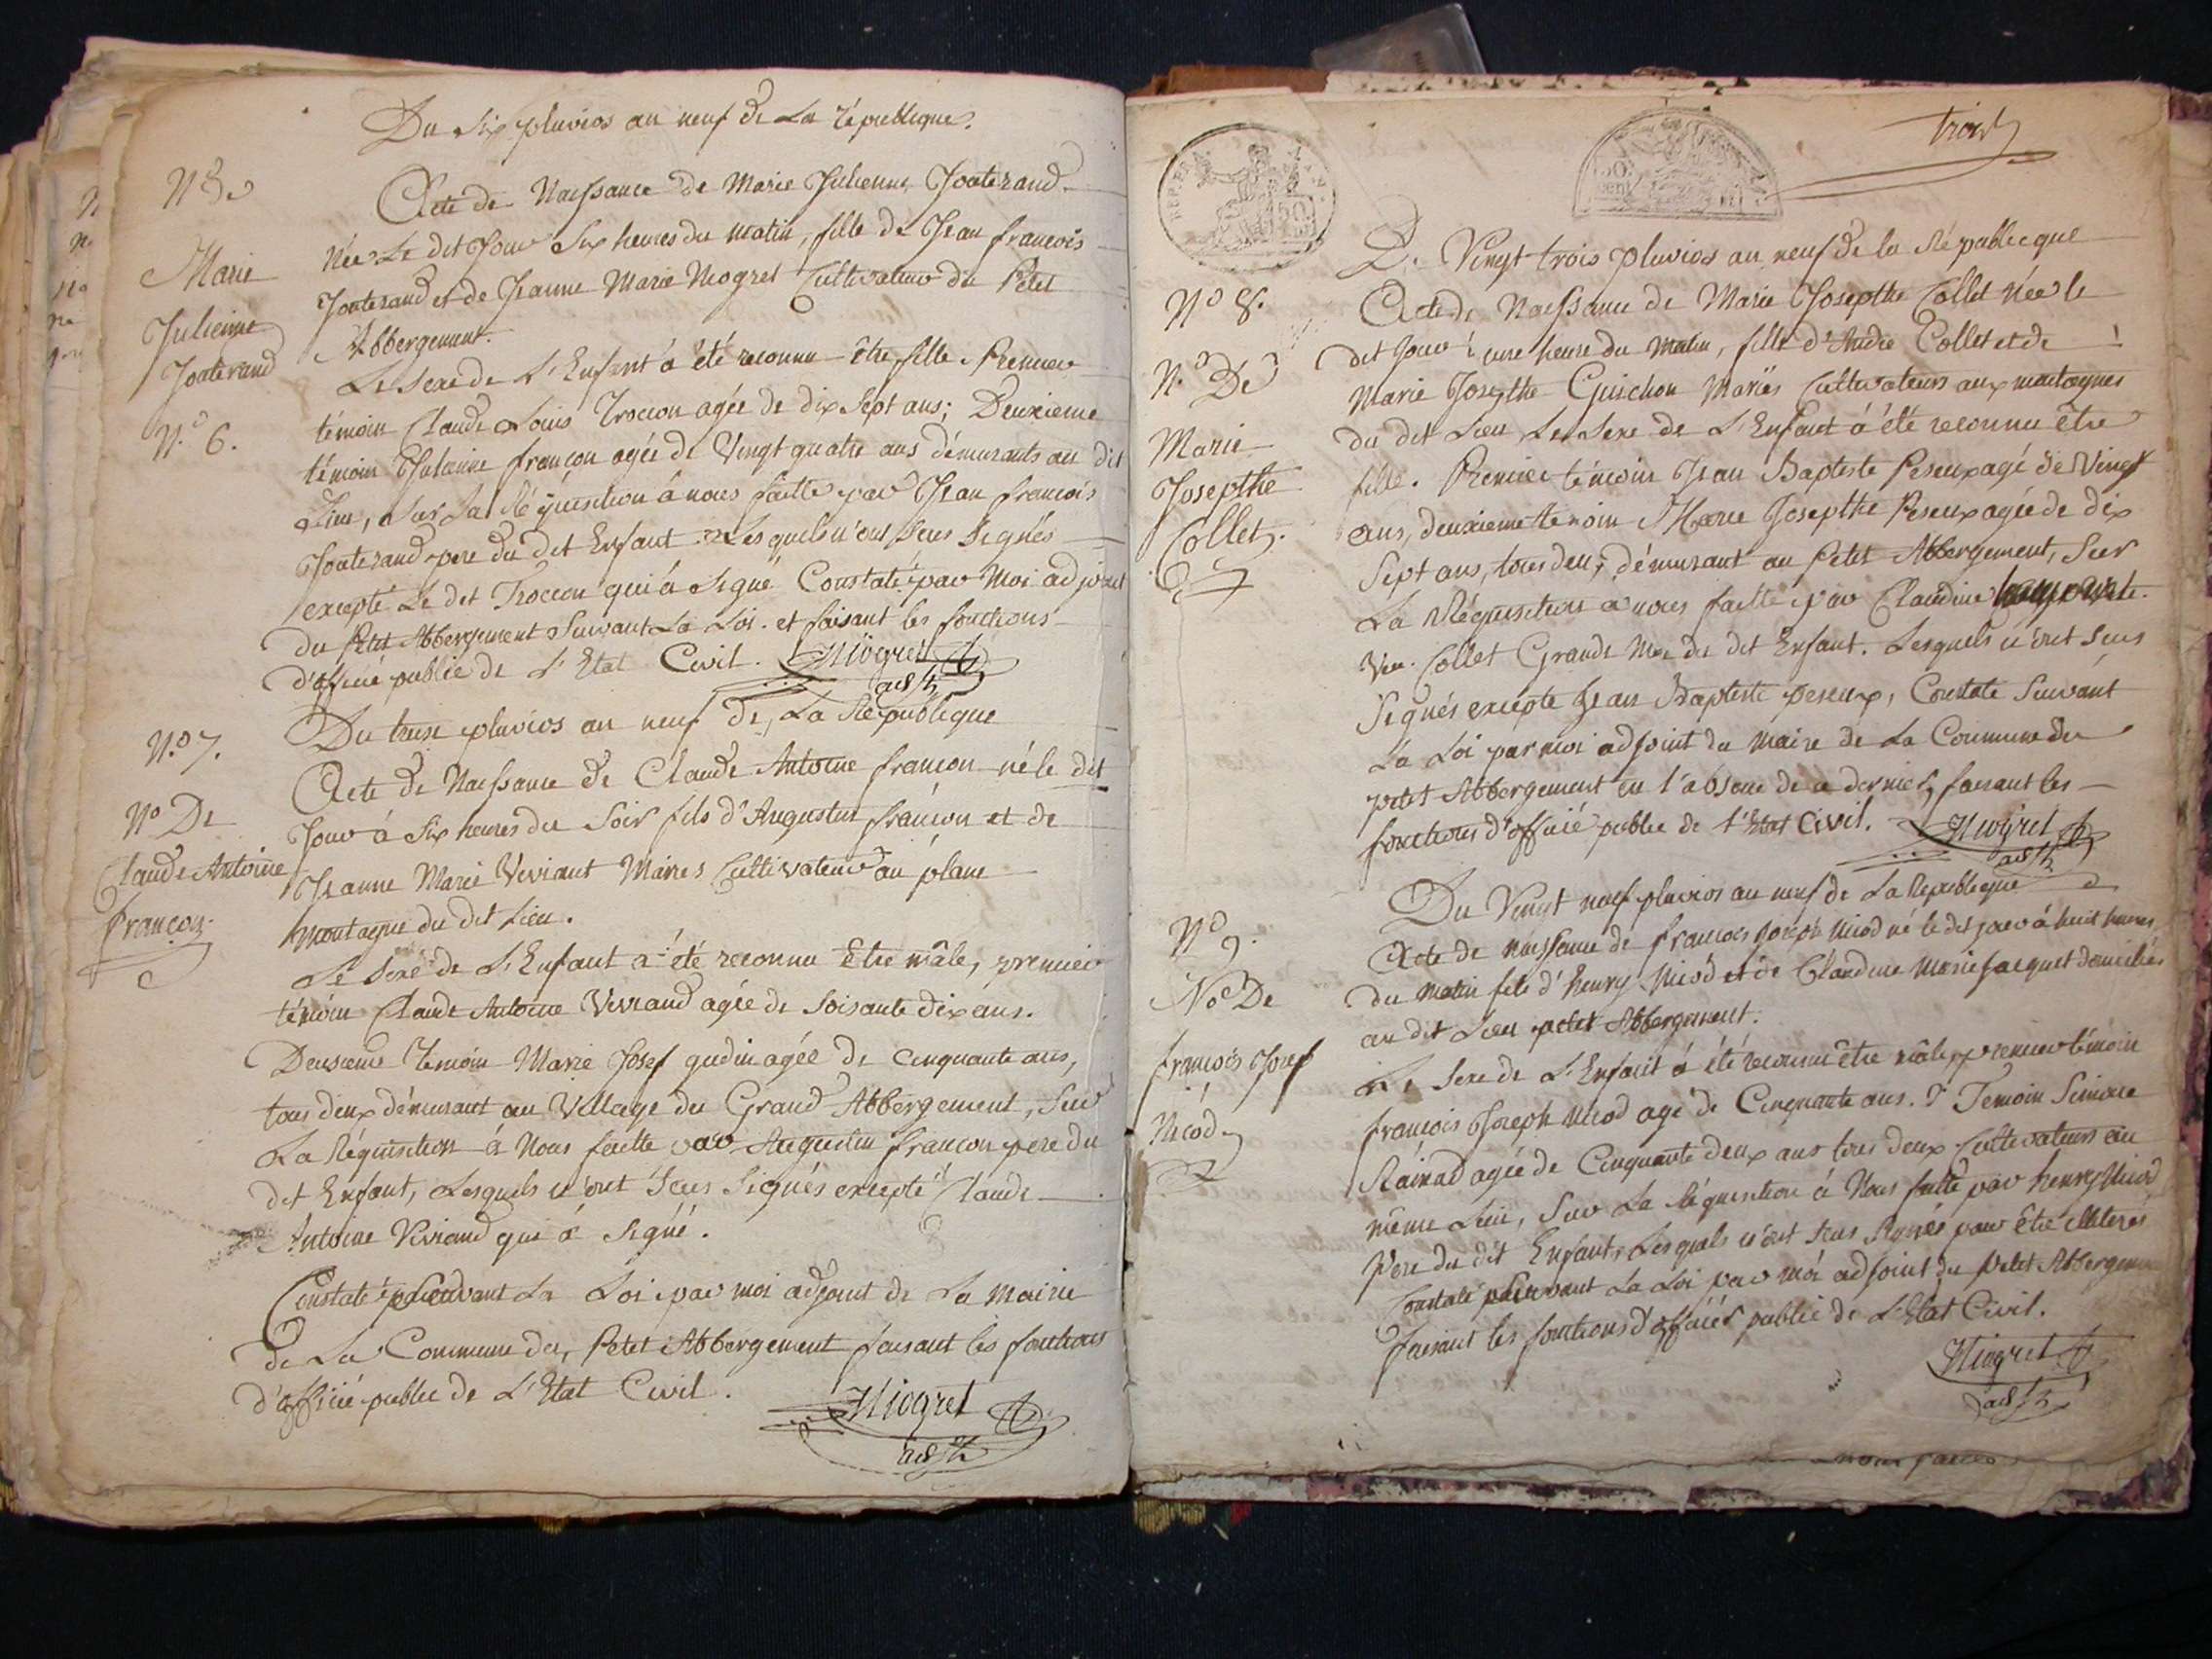 Du Six pluvios an neuf de La république.
N.o
Acte de Naissance de Marie Julienne Jouterand
Née Le dit Jour Six heures du matin, fille de Jean françois
Marie
Julienne
Jouterand
Jouterand et de Jeanne Marie Niogret Cultivateur du Petit
Abbergement.
Le Sexe de L'Enfant à été reconnu être fille. Premier
N.o 6.
témoin Claude Louis Trocon agée de dix Sept ans; Deuxieme
témoin Julienne françon agée de Vingt quatre ans démurants au dit
Lieu, Sur La Réquisition à nous faitte par Jean françois
Jouterand pere du dit Enfant. Lesquels n'ont Seus Signés
excepté Le dit Trocon qui à Signé Constaté par Moi adjoint
du Petit Abbergement Suivant La Loi. et faisant les fonctions
d'officié public de L'Etat Civil. Niogret
adjt
N.o 7.
Du treise pluvios an neuf de La République
Acte de Naissance de Claude Antoine françon né le dit
N.o De
Claude Antoine
françon.
Jour à Six heures du Soir fils d'Augustin françon et de
Jeanne Marie Viviant Mariés Cultivateur au plane
Montagne du dit Lieu.
Le Sexe de L'Enfant à été reconnu Etre mâle, premier
témoin Claude Antoine Viviand agée de Soisante dix ans.
Deuxieme Temoin Marie Josef gudin agée de Cinquante ans,
tous deux démurant au Village du Grand Abbergement, Sur
La Réquisition à Nous faitte par Augustin françon pere du
dit Enfant, Lesquels n'ont Seus Signés excepté Claude
Antoine Viviand qui à Signé.
Constaté Suivant La Loi par moi adjoint de La Mairie
de La Commune du Petit Abbergement faisant les fonctions
d'officié public de L'Etat Civil.
Niogret
adjt
trois
REP. FRA.
50
50
cent
Du Vingt trois pluvios an neuf de la République
N.o 8.
Acte de Naissance de Marie Josepthe Collet née le
dit Jour à une heure du Matin, fille d'André Collet et de
N.o De
Marie
Josepthe
Collet.
Marie Josepthe Guichon Mariés Cultivateurs aux montagnes
du dit Lieu Le Sexe de L'Enfant à été reconnu être
fille. Premier témoin Jean Baptiste Peseux agé de Vingt
ans, deuxieme temoin Marie Josepthe Peseux agée de dix
Sept ans, tous deux démurant au Petit Abbergement, Sur
La Réquisition à nous faitte par Claudine
Collet Grande Mere du dit Enfant. Lesquels n'ont Seus
Signés excepté Jean Baptiste peseux, Constaté Suivant
La Loi par moi adjoint du Maire de La Commune du
petit Abbergement en l'absence de ce dernier, faisant les
fonctions d'officié public de l'Etat Civil. Niogret
adjt
N.o 9.
Du Vingt neuf pluvios an neuf de La République
Acte de naissance de françois Joseph Nicod né le dit jour à huit heures
N.o De
françois Josef
Nicod
du Matin fils d'henry Nicod et de Claudine Marie Jacquet domiciliés
au dit Lieu petit Abbergement.
Le Sexe de L'Enfant à été reconnu être mâle, premier témoin
françois Joseph Nicod agé de Cinquante ans. Temoin Simone
agée de Cinquante deux ans tous deux Cultivateurs au
même Lieu, Sur La Réquisition à Nous faitte par henry Nicod
Pere du dit Enfant, Lesquels n'ont Seus Signés pour être illiterés
Constaté Suivant La Loi par moi adjoint du Petit Abbergement
faisant les fonctions d'officiér public de L'Etat Civil.
Niogret
adjt